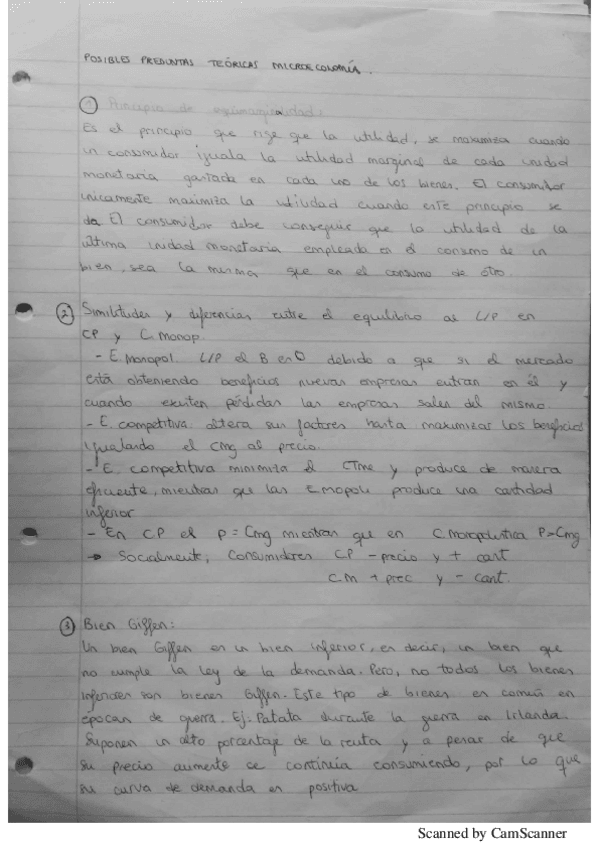 POSIBLES PREGUNTAS TEÓRICAS MICROECONOMÍA.
① Principio de equimarginalidad:
Es el principio que rige que la utilidad, se maximiza cuando
un consumidor iguala la utilidad marginal de cada unidad
monetaria gastada en cada uno de los bienes. El consumidor
unicamente maximiza la utilidad cuando este principio se
da. El consumidor debe conseguir que la utilidad de la
última unidad monetaria empleada en el consumo de un
bien, sea la misma que en el consumo de otro.
② Similitudes y diferencias entre el equilibrio al L/P en
CP y C. Monop.
- E. Monopol. L/P el B es 0 debido a que si el mercado
está obteniendo beneficios nuevas empresas entran en él y
cuando existen pérdidas las empresas salen del mismo.
- E. competitiva altera sus factores hasta maximizar los beneficios
igualando el Cmg al precio.
- E. competitiva minimiza el CTme y produce de manera
eficiente, mientras que las E mopoli produce una cantidad
inferior
- En CP el p = Cmg mientras que en C Monopolística P>Cmg
→ Socialmente, Consumidores CP - precio y + cant
CM + prec y - cant.
③ Bien Giffen:
Un bien Giffen es un bien inferior, es decir, un bien que
no cumple la ley de la demanda. Pero, no todos los bienes
inferiores son bienes Giffen. Este tipo de bienes es común en
épocas de guerra. Ej. Patata durante la guerra en Irlanda.
Suponen un alto porcentaje de la renta y a pesar de que
su precio aumente se continúa consumiendo, por lo que
su curva de demanda es positiva
Scanned by CamScanner